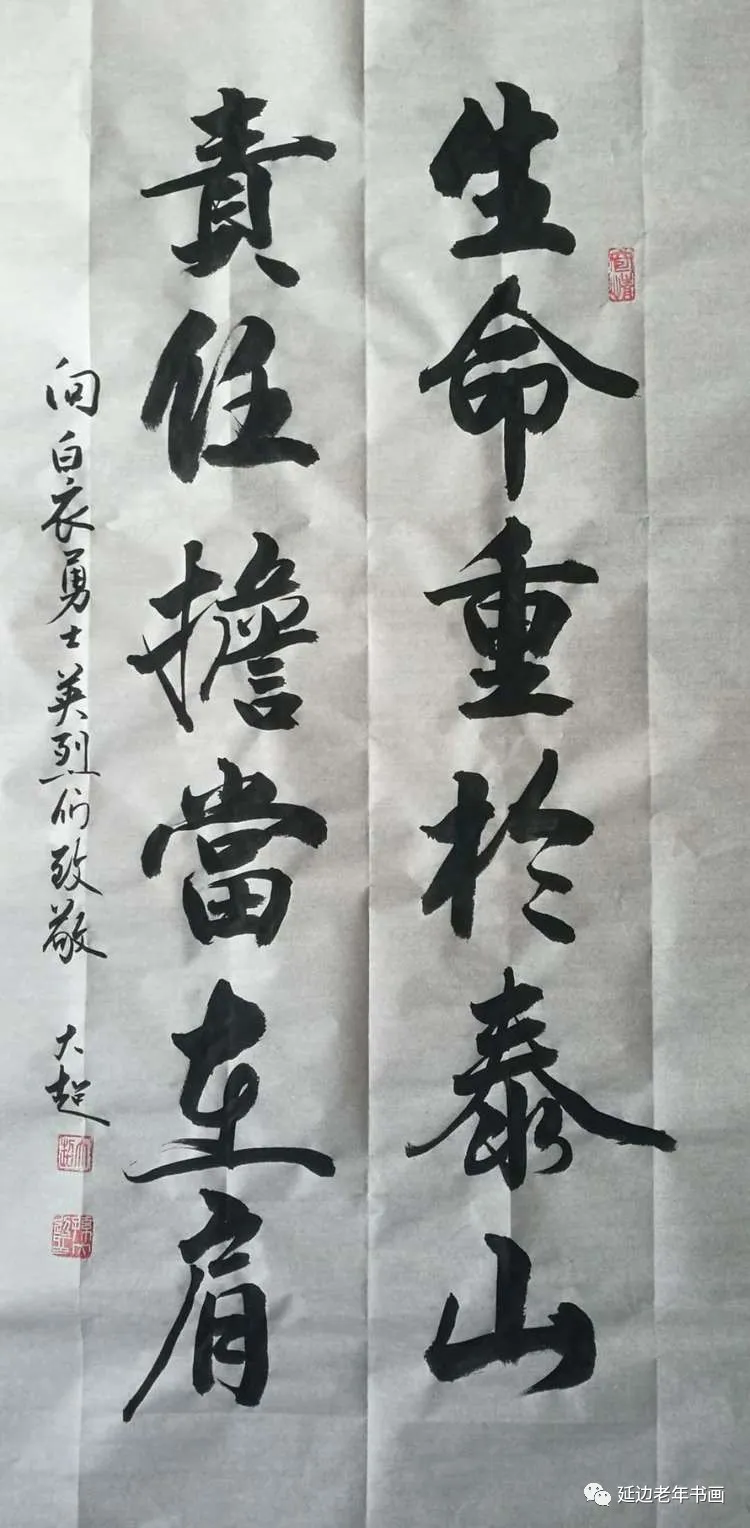 生命重於泰山
責任擔當在肩
向白衣勇士英烈们致敬
大超
延边老年书画